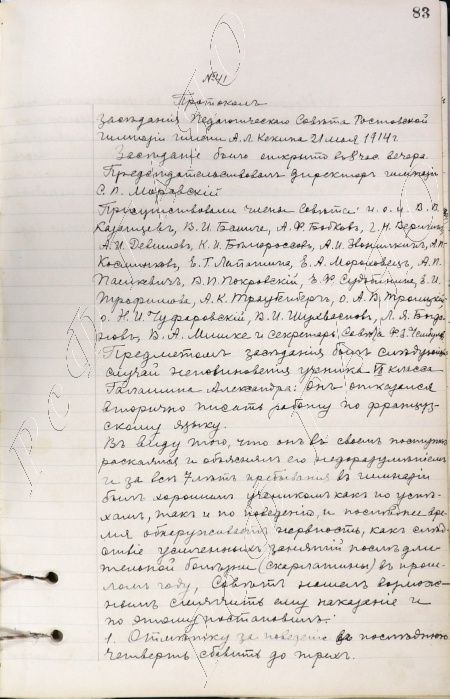 83
№ 41
Протоколъ
засѣданія Педагогическаго Совѣта Ростовской
гимназіи имени А. Л. Кекина 21 мая 1914 г.
Засѣданіе было открыто въ 8 час вечера
Предсѣдательствовалъ директоръ гимназіи
С. П. Моравскій
Присутствовали члены Совѣта: и. о. и. В. В.
В. И. А. Ф. Бобковъ, Г. Н.
А. И. К. И. Бѣлороссовъ, А. И. А. П.
Е. Г. Латышина, Е. А. Мороховецъ, А. П.
Пашкевичъ, В. П. Покровскій, Е. Ф. Е. И.
Трофимова, А. К. Траубенбергъ, о. А. В. Троицкій
о. Н. И. Чуфаровскій, В. И. Л. Я. Богда-
новъ, В. А. Мишке и Секретарь Совѣта Ф. З.
Предметомъ засѣданія былъ слѣдующій
случай неповиновенія ученика класса
Галашина Александра: Онъ отказался
вторично писать работу по француз-
скому языку.
Въ виду того, что онъ въ своемъ поступкѣ
раскаялся и объяснилъ его недоразумѣніемъ
и за всѣ 7 лѣтъ пребыванія въ гимназіи
былъ хорошимъ ученикомъ какъ по успѣ-
хамъ, такъ и по поведенію, и послѣднее вре-
мя обнаруживаетъ нервность, какъ слѣд-
ствіе усиленныхъ занятій послѣ дли-
тельной болѣзни (скарлатины) въ прош-
ломъ году, Совѣтъ нашелъ возмож-
нымъ смягчить ему наказаніе и
по этому постановилъ:
1. Отмѣтку за поведеніе за послѣднюю
четверть сбавить до трехъ.